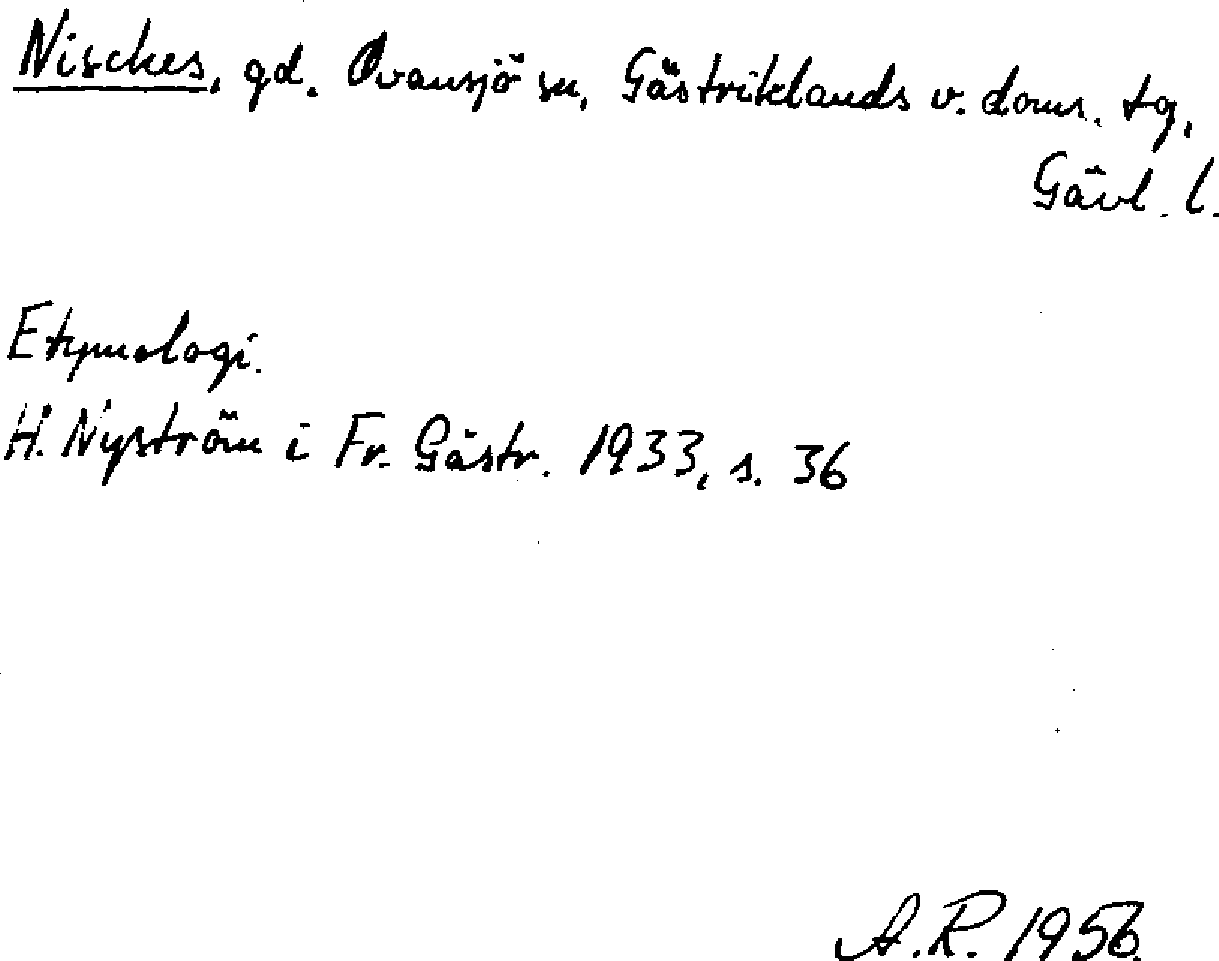 Nisckes, gd. Ovansjö sn, Gästriklands v. doms. tg,
Gävl. l.
Etymologi.
H. Nyström i Fr. Gästr. 1933, s. 36
A.R. 1956.